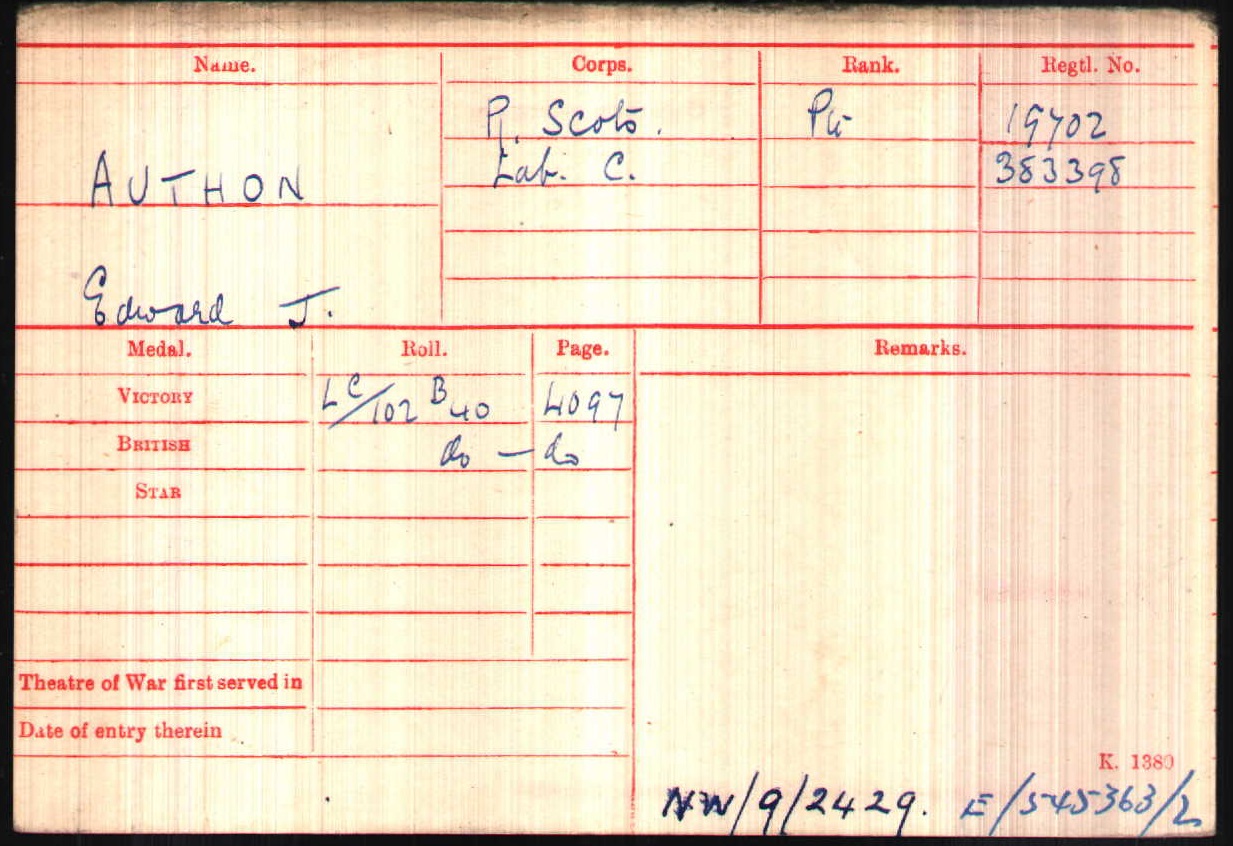 Name. Corps. Rank. Regtl. No.
R. Scots. Pte 19702
AUTHON Lab. C. 383398
Edward J.
Medal. Roll. Page. Remarks.
VICTORY LC/102 B40 4097
BRITISH do — do
STAR
Theatre of War first served in
Date of entry therein
K. 1380
NW/9/2429. E/545363/2